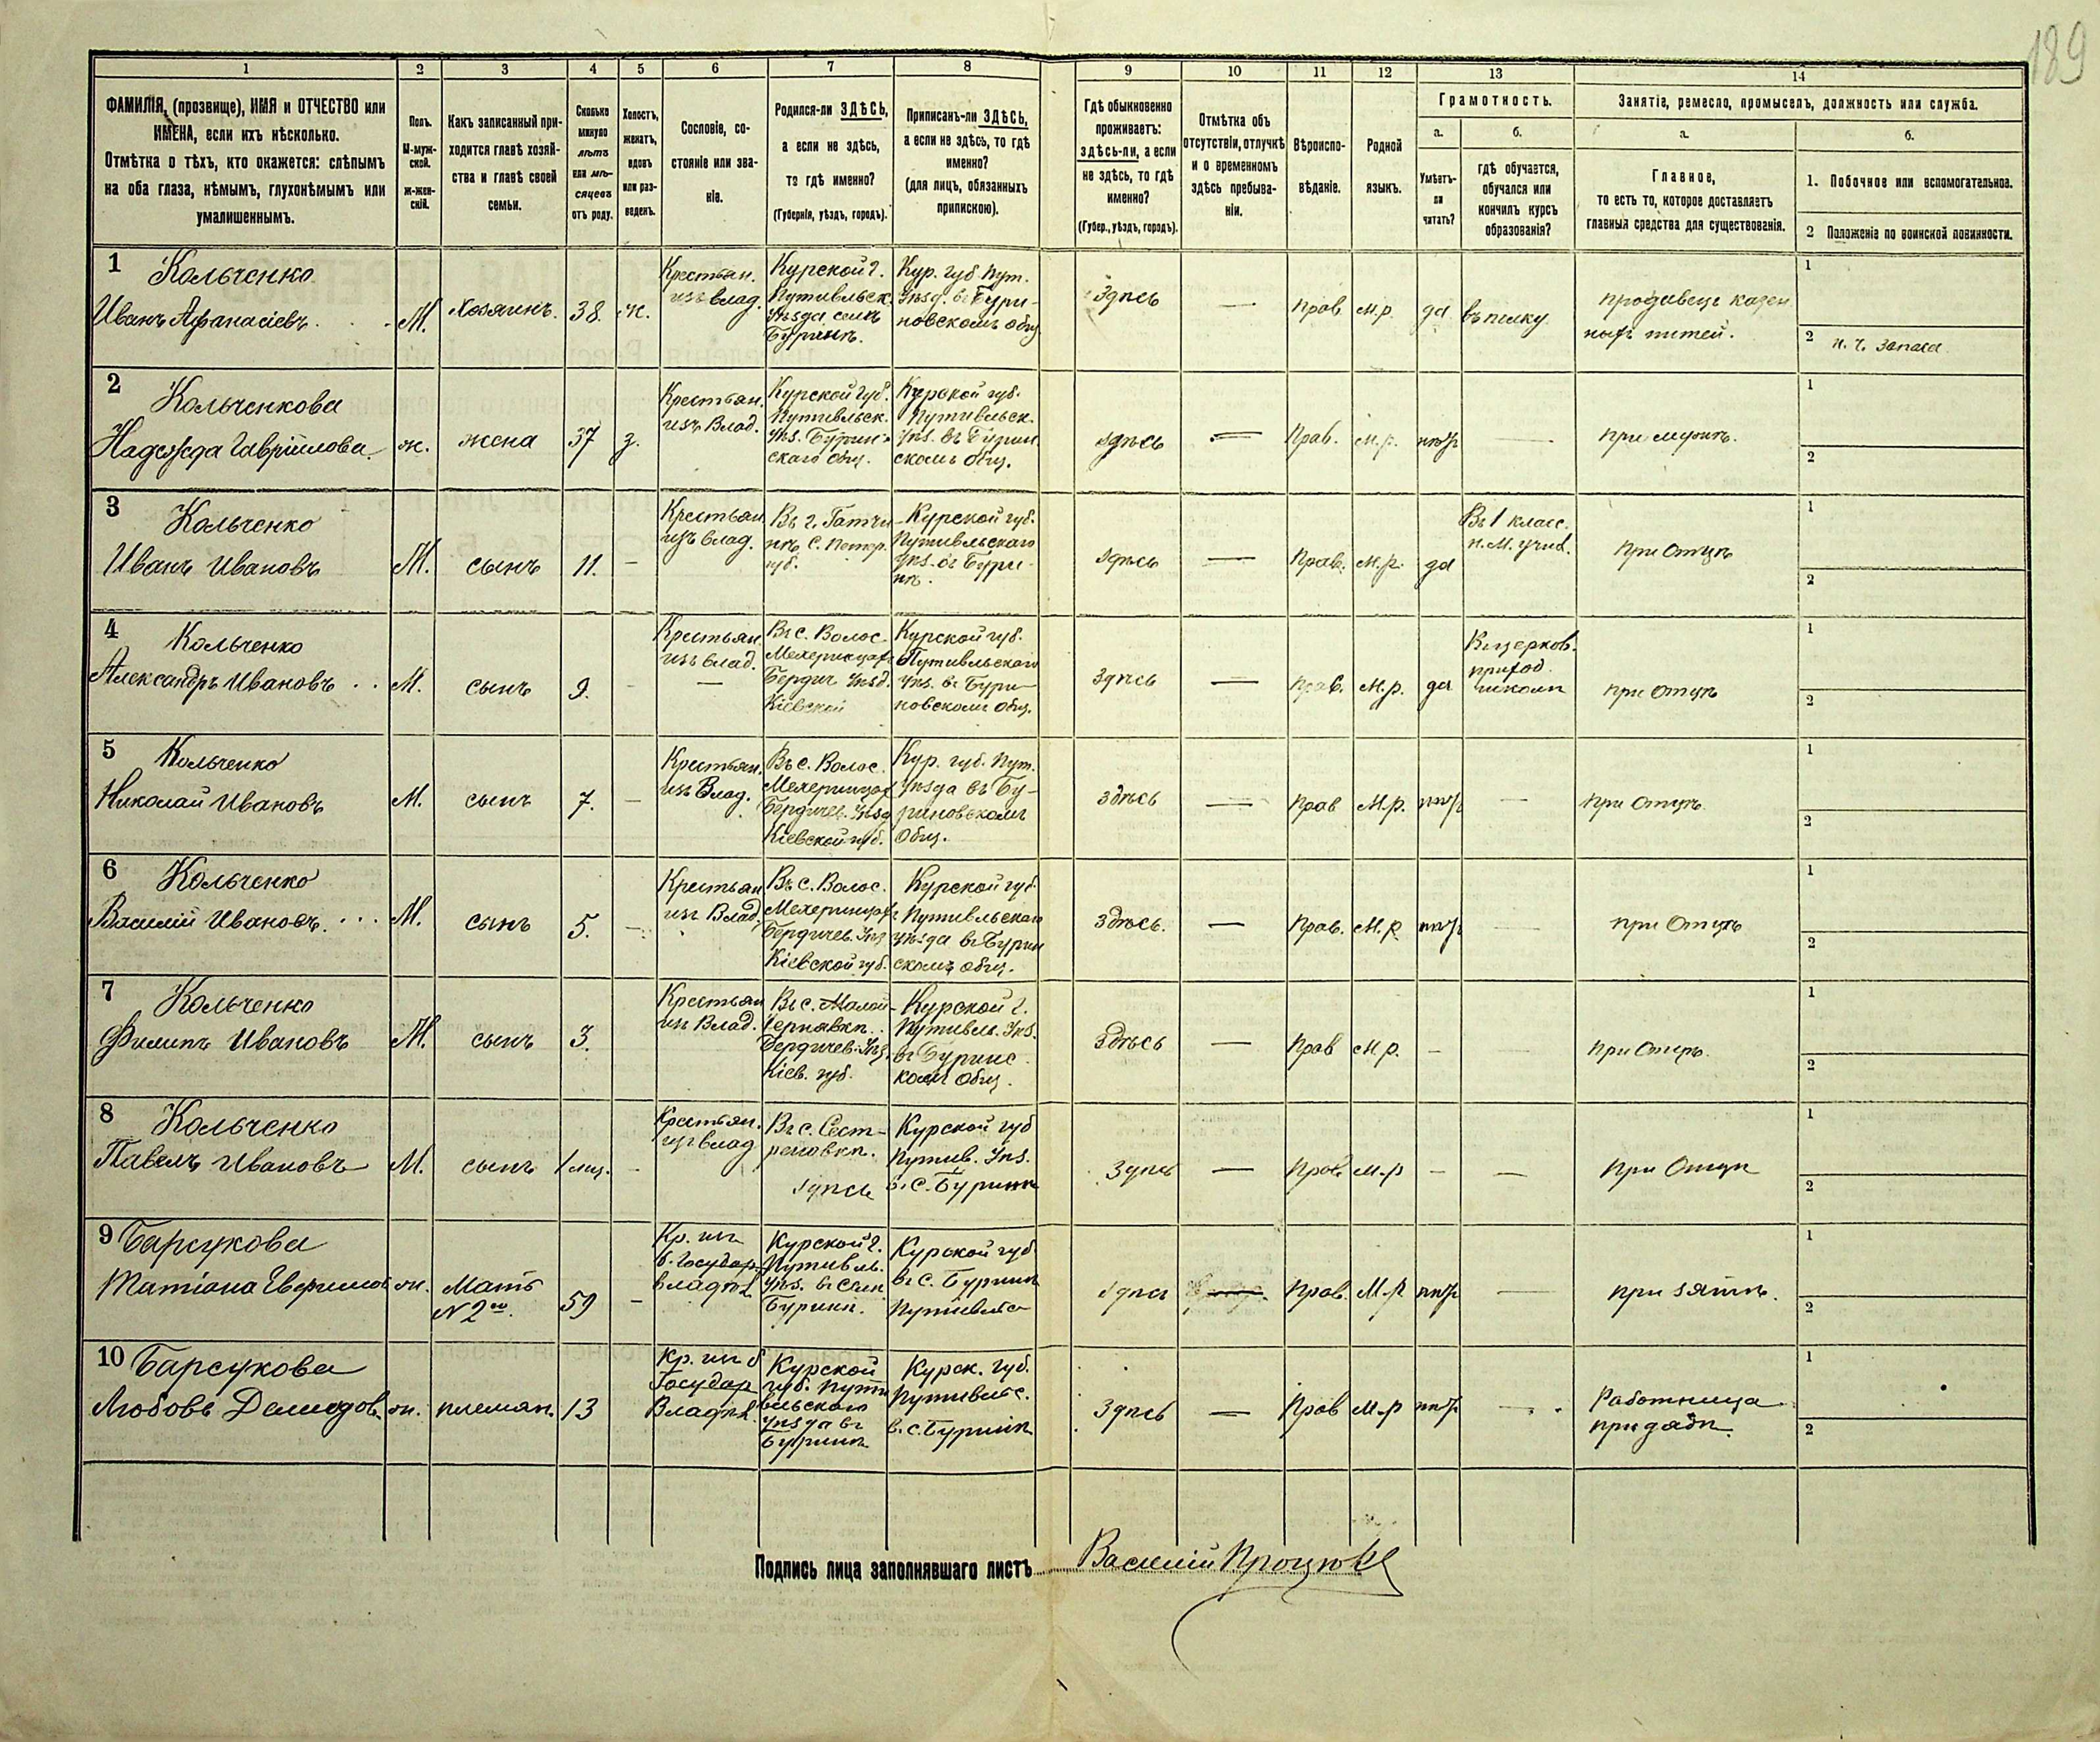 189
1 2 3 4 5 6 7 8 9 10 11 12 13 14
ФАМИЛІЯ, (прозвище), ИМЯ и ОТЧЕСТВО или
ИМЕНА, если ихъ нѣсколько.
Отмѣтка о тѣхъ, кто окажется: слѣпымъ
на оба глаза, нѣмымъ, глухонѣмымъ или
умалишеннымъ.
Полъ.
М-муж-
ской.
ж-жен-
скій.
Какъ записанный при-
ходится главѣ хозяй-
ства и главѣ своей
семьи.
Сколько
минуло
лѣтъ
или мѣ-
сяцевъ
отъ роду.
Холостъ,
женатъ,
вдовъ
или раз-
веденъ.
Сословіе, со-
стояніе или зва-
ніе.
Родился-ли ЗДѢСЬ,
а если не здѣсь,
то гдѣ именно?
(Губернія, уѣздъ, городъ).
Приписанъ-ли ЗДѢСЬ,
а если не здѣсь, то гдѣ
именно?
(для лицъ, обязанныхъ
припискою).
Гдѣ обыкновенно
проживаетъ:
здѣсь-ли, а если
не здѣсь, то гдѣ
именно?
(Губер., уѣздъ, городъ).
Отмѣтка объ
отсутствіи, отлучкѣ
и о временномъ
здѣсь пребыва-
ніи.
Вѣроиспо-
вѣданіе.
Родной
языкъ.
Грамотность.
а.
Умѣетъ-
ли
читать?
б.
гдѣ обучается,
обучался или
кончилъ курсъ
образованія?
Занятіе, ремесло, промыселъ, должность или служба.
а.
Главное,
то есть то, которое доставляетъ
главныя средства для существованія.
б.
1. Побочное или вспомогательное.
2 Положеніе по воинской повинности.
1 Кольченко
Иванъ Афанасіевъ
М.
Хозяинъ.
38.
ж.
Крестьян.
изъ влад.
Курской г.
Путивльск.
Уѣзда селѣ
Буринѣ.
Кур. губ. Пут.
Уѣзд. въ Бури-
новскомъ общ
Здѣсь
—
Прав.
М.р.
да
въ полку
продавецъ казен
ныхъ питей.
1
2 н. ч. запаса
2 Кольченкова
Надежда Гавріилова.
ж.
жена
37
з.
Крестьян.
изъ Влад.
Курской Губ.
Путивльск.
Уѣз. Бурин-
скаго общ.
Курской губ.
Путивльск.
Уѣз. въ Бурин
скомъ общ.
здѣсь
—
Прав.
М.р.
нѣтъ
—
при мужѣ.
1
2
3 Кольченко
Иванъ Ивановъ
М.
сынъ
11.
–
Крестьян
изъ влад.
Въ г. Гатчи
нѣ С. Петер.
губ.
Курской губ.
Путивльскаго
уѣз. въ Бури-
нѣ.
здѣсь
—
Прав.
М.р.
да
Въ 1 класс.
н. М. учил.
при Отцѣ
1
2
4 Кольченко
Александръ Ивановъ
М.
сынъ
9.
–
Крестьян.
изъ влад.
—
Въ с. Волос.
Бердич Уѣзд.
Кіевской
Курской губ.
Путивльскаго
Уѣз. въ Бури-
новскомъ общ.
Здѣсь
—
Прав.
М.р.
да
Въ церков.
приход.
школѣ
при Отцѣ
1
2
5 Кольченко
Николай Ивановъ
М.
сынъ
7.
–
Крестьян.
изъ Влад.
Въ с. Волос.
Бердичев. Уѣзд
Кіевской губ.
Кур. губ. Пут.
Уѣзда въ Бу-
риновскомъ
Общ.
Здѣсь
—
Прав
М.р.
нѣтъ
—
при Отцѣ.
1
2
6 Кольченко
Василій Ивановъ.
М.
сынъ
5.
–
Крестьян
изъ Влад.
Въ с. Волос.
Бердичев. Уѣз
Кіевской губ.
Курской губ.
Путивльскаго
уѣзда въ Бурин
скомъ общ.
Здѣсь.
—
Прав.
М.р.
нѣтъ
—
при Отцѣ
1
2
7 Кольченко
Филипъ Ивановъ
М.
сынъ
3.
Крестьян
изъ Влад.
Въ с. Малой
Чернявкѣ.
Бердичев. Уѣз.
Кіев. губ.
Курской г.
Путивль. Уѣз.
въ Буринс
комъ общ.
Здѣсь
—
Прав
М.р.
–
—
при Отцѣ.
1
2
8 Кольченко
Павелъ Ивановъ
М.
сынъ
1 мѣс.
–
Крестьян.
изъ влад
Въ с. Сест-
реновкѣ.
здѣсь
Курской губ
Путив. Уѣз.
въ С. Буринѣ
Здѣсь
—
Прав.
М.р
–
—
при Отцѣ
1
2
9 Барсукова
Татіана Ефимов
ж.
Мать
№ 2го.
59
–
Кр. изъ
б. Государ.
владѣл
Курской г.
Путивль.
уѣз. въ селѣ
Буринѣ.
Курской губ
въ с. Буринѣ
Путивльс
здѣсь
Прав.
М.р
нѣтъ
—
при зятѣ.
1
2
10 Барсукова
Любовь Демидов.
ж.
племян.
13
Кр. изъ б
Государ
Владѣл.
Курской
губ. Пути
вльскаго
Уѣзда въ
Буринѣ
Курск. губ.
Путивльс.
въ с. Буринѣ
Здѣсь
—
Прав
М.р
нѣтъ
—
Работница
при дядѣ.
1
2
Подпись лица заполнявшаго листъ Василій Процюкъ